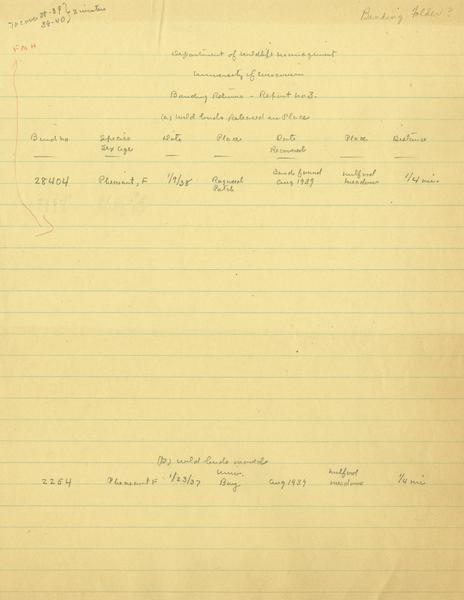 To cover 38-39 } 2 winters
39-40
Banding Folder?
FNH
Department of Wildlife Management
University of Wisconsin
Banding Returns - Report No 3.
(a) Wild birds Released in Place
Band no. Species Sex Age Date Place Date Recovered Place Distance
28404 Pheasant, F 1/9/38 Ragweed Patch Band found Aug 1939 Milford meadow 1/4 mi.
(b) Wild birds moved
2264 Pheasant F 1/23/37 Univ. Bay Aug 1939 Milford meadow 1/4 mi